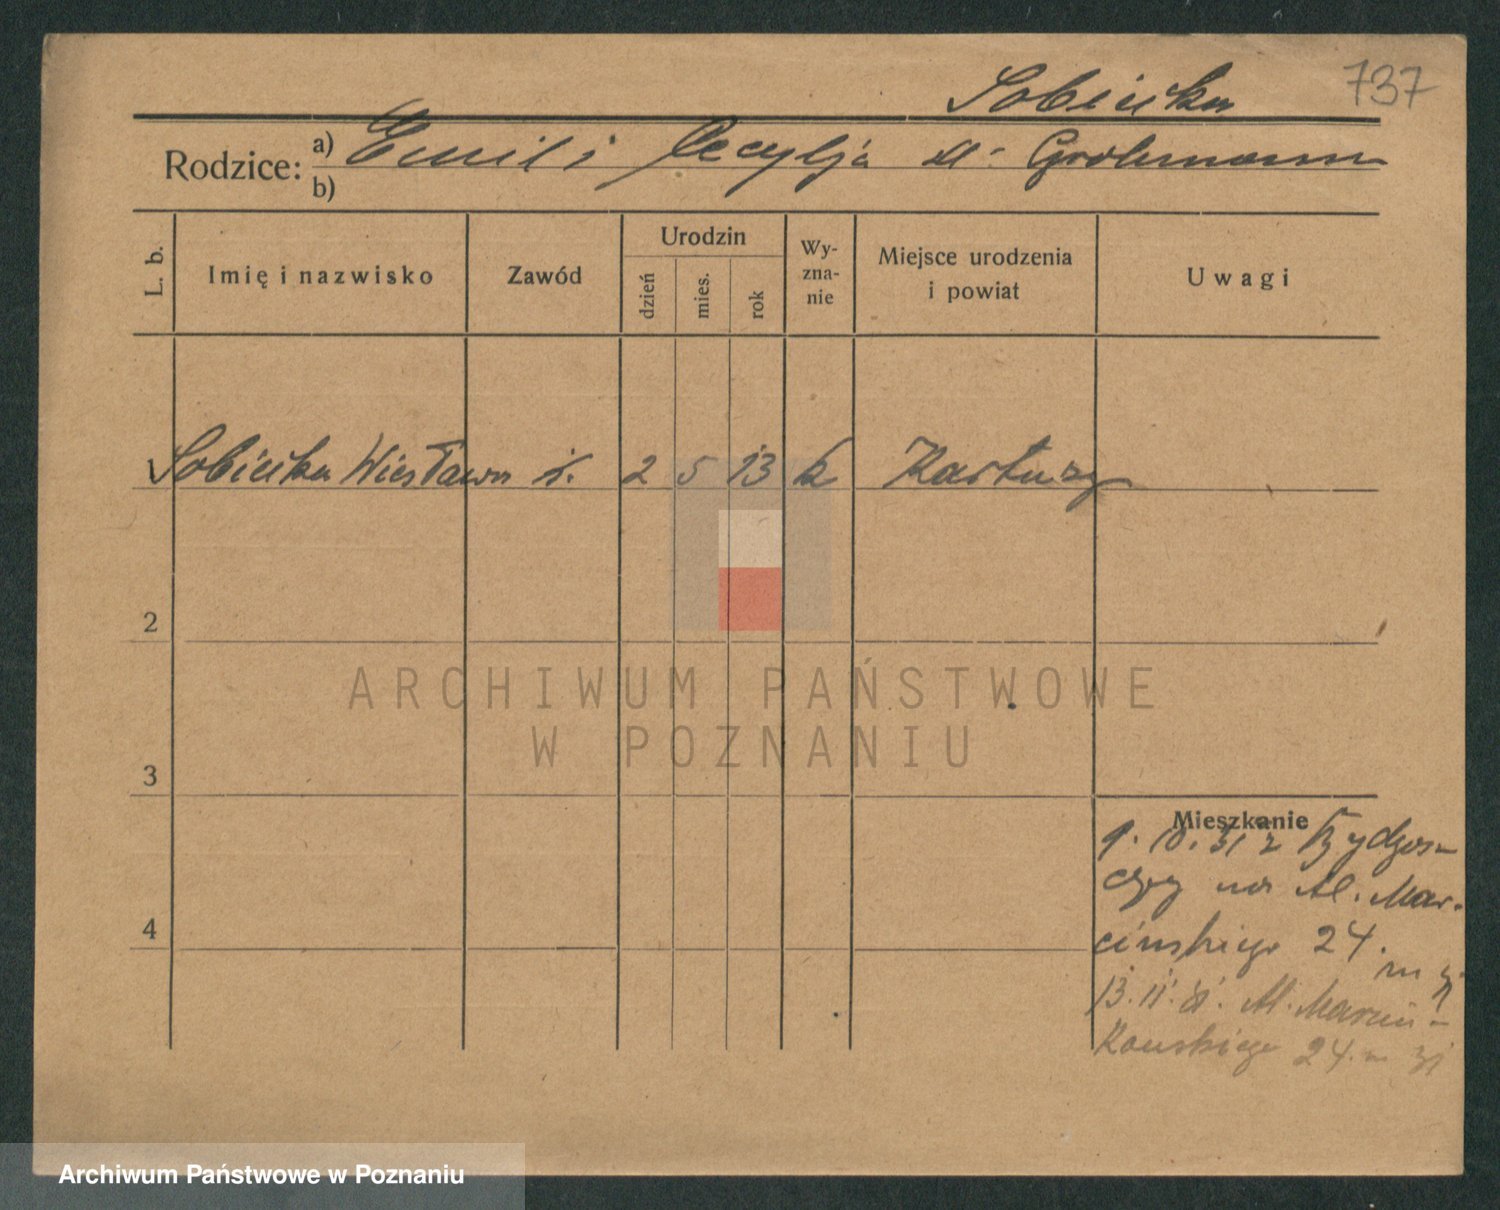 737
Sobiecka
Rodzice: a) Emil i Cecylja dd. Grohmann
b)
L. b.
Imię i nazwisko
Zawód
Urodzin
dzień
mies.
rok
Wy-
zna-
nie
Miejsce urodzenia
i powiat
Uwagi
Sobiecka Wiesława 2 5 13 k Kartuzy
2
3
4
Mieszkanie
9. 10. 31 z Bydgosz-
czy na Al. Mar-
cinkowskiego 24.
13. 11. 31. Al. Marcin-
kowskiego 24.
ARCHIWUM PAŃSTWOWE
W POZNANIU
Archiwum Państwowe w Poznaniu